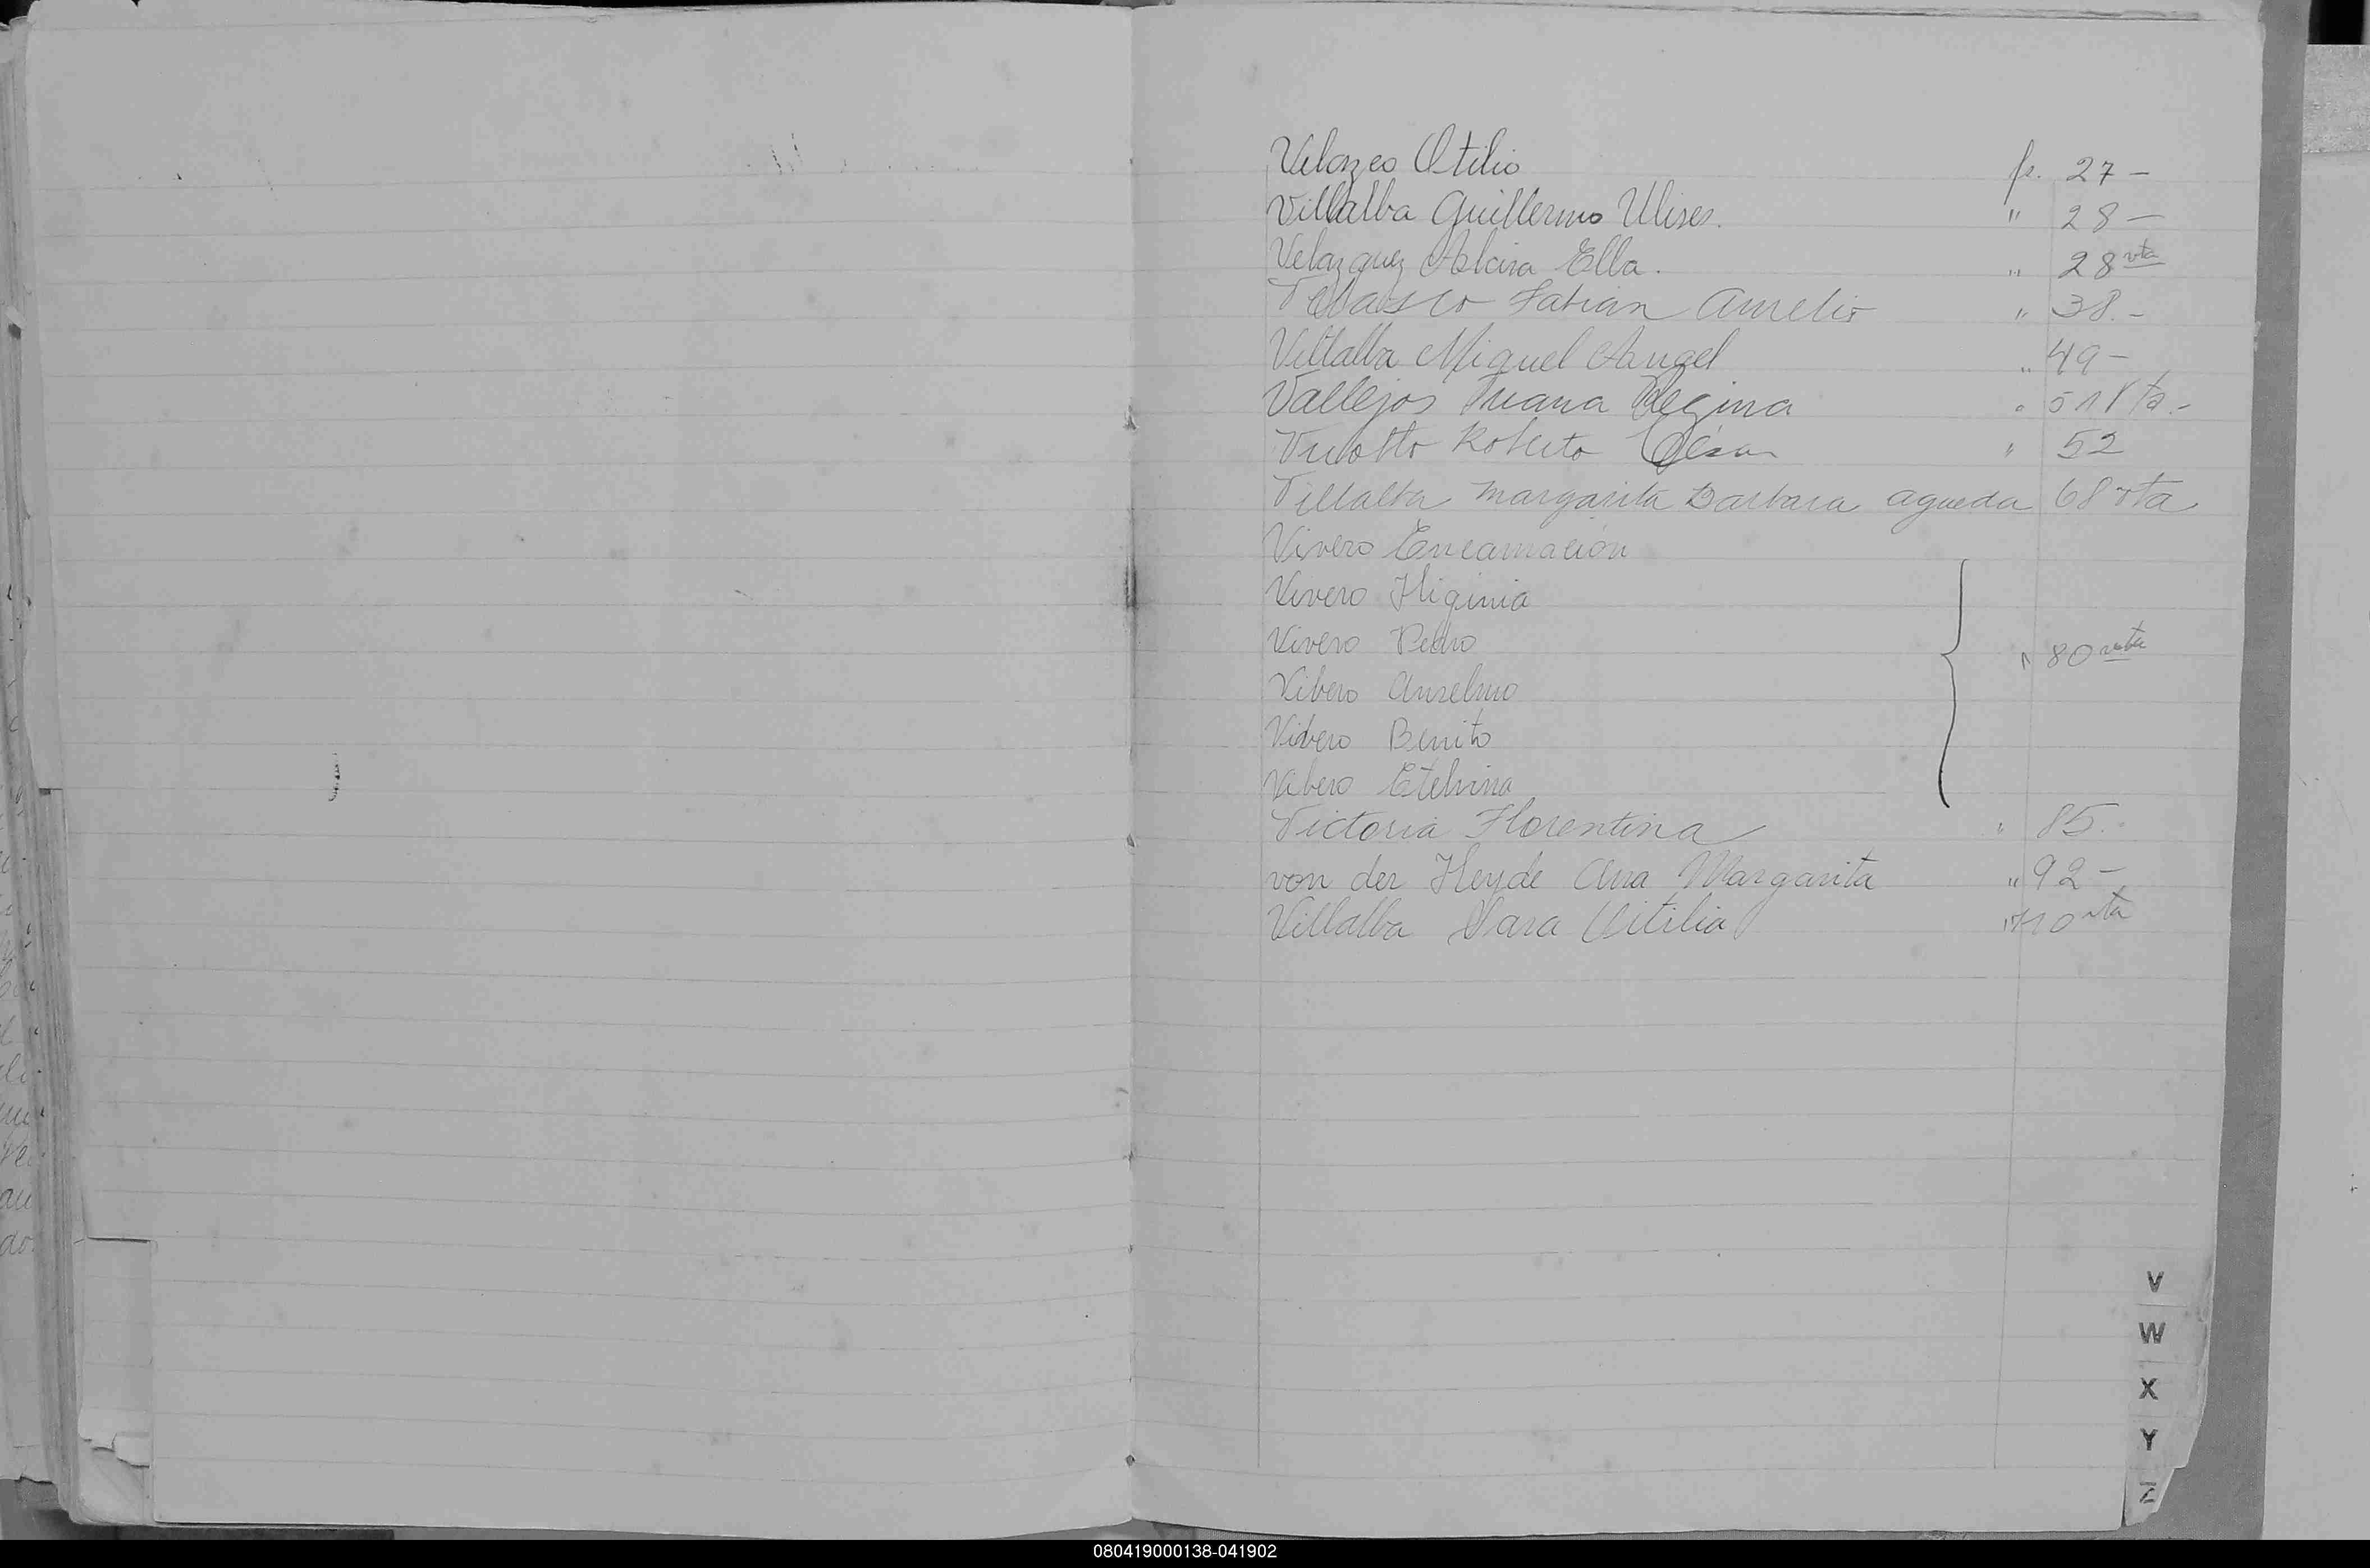 Velozeo Otilio fs. 27 -
Villalba Guillermo Ulises. " 28 -
Velazquez Alcira Ella. " 28 vta
Velasco Fabian Aurelio " 38. -
Villalba Miguel Angel " 49 -
Vallejos Juana Regina " 51 Vta. -
Roberto César " 52
Villalba Margarita Barbara Agueda 68 vta
Vivero Encarnación
Vivero Higinia
Vivero Pedro " 80 vta
Vibero Anselmo
Vibero Benito
Vibero Etelvina
Victoria Florentina " 85.
von der Heyde Ana Margarita " 92 -
Villalba Sara Otilia " 110 vta
V
W
X
Y
Z
080419000138-041902